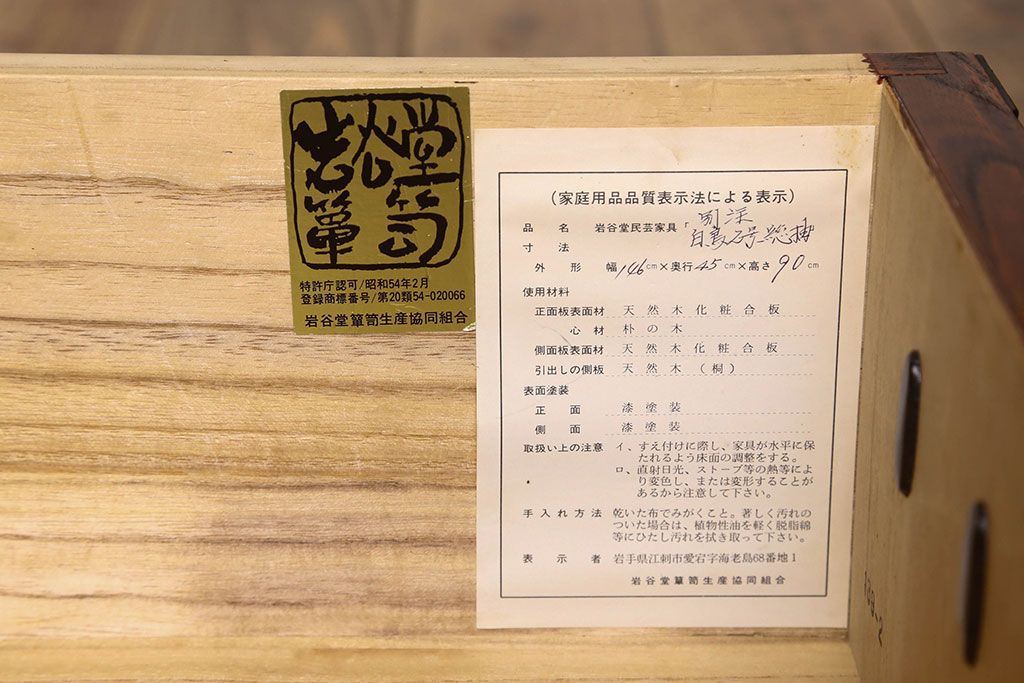 岩谷堂
簞笥
特許庁認可/昭和54年2月
登録商標番号/第20類54-020066
岩谷堂簞笥生産協同組合
(家庭用品品質表示法による表示)
品名 岩谷堂民芸家具「別深
白鳥2号総押
寸法
外形 幅146cm×奥行45cm×高さ90cm
使用材料
正面板表面材 天然木化粧合板
心材 朴の木
側面板表面材 天然木化粧合板
引出しの側板 天然木(桐)
表面塗装
正面 漆塗装
側面 漆塗装
取扱い上の注意 イ、すえ付けに際し、家具が水平に保
たれるよう床面の調整をする。
ロ、直射日光、ストーブ等の熱等によ
り変色し、または変形することが
あるから注意して下さい。
手入れ方法 乾いた布でみがくこと。著しく汚れの
ついた場合は、植物性油を軽く脱脂綿
等にひたし汚れを拭き取って下さい。
表示者 岩手県江刺市愛宕字海老島68番地1
岩谷堂簞笥生産協同組合